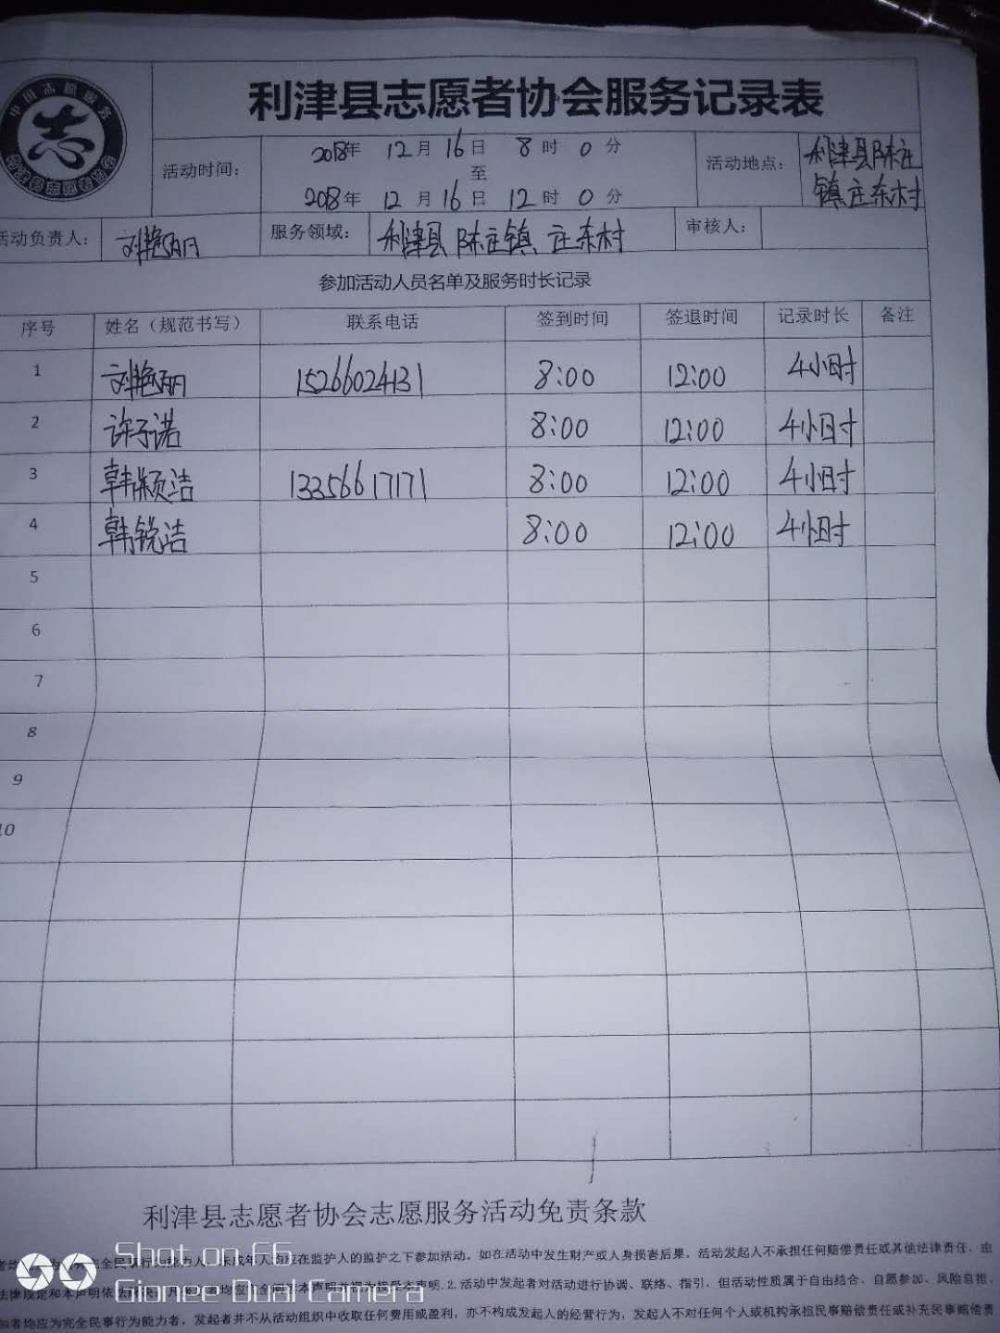 利津县志愿者协会服务记录表
志
活动时间：
2018年 12月 16日 8时 0分
至
2018年 12月 16日 12时 0分
活动地点：
利津县陈庄
镇庄东村
活动负责人：
刘艳丽
服务领域：
利津县陈庄镇 庄东村
审核人：
参加活动人员名单及服务时长记录
序号 姓名（规范书写） 联系电话 签到时间 签退时间 记录时长 备注
1 刘艳丽 15266024131 8:00 12:00 4小时
2 许子诺 8:00 12:00 4小时
3 韩颖洁 13356617171 8:00 12:00 4小时
4 韩锐洁 8:00 12:00 4小时
5
6
7
8
9
10
利津县志愿者协会志愿服务活动免责条款
未成年人均应在监护人的监护之下参加活动。如在活动中发生财产或人身损害后果，活动发起人不承担任何赔偿责任或其他法律责任，由
法律规定和本声明依 本声明并视为接受本声明。2.活动中发起者对活动进行协调、联络、指引，但活动性质属于自由结合、自愿参加、风险自担、
均应为完全民事行为能力者。发起者并不从活动组织中收取任何费用或盈利，亦不构成发起人的经营行为，发起人不对任何个人或机构承担民事赔偿责任或补充民事赔偿责
Shot on F6
Gionee Dual Camera